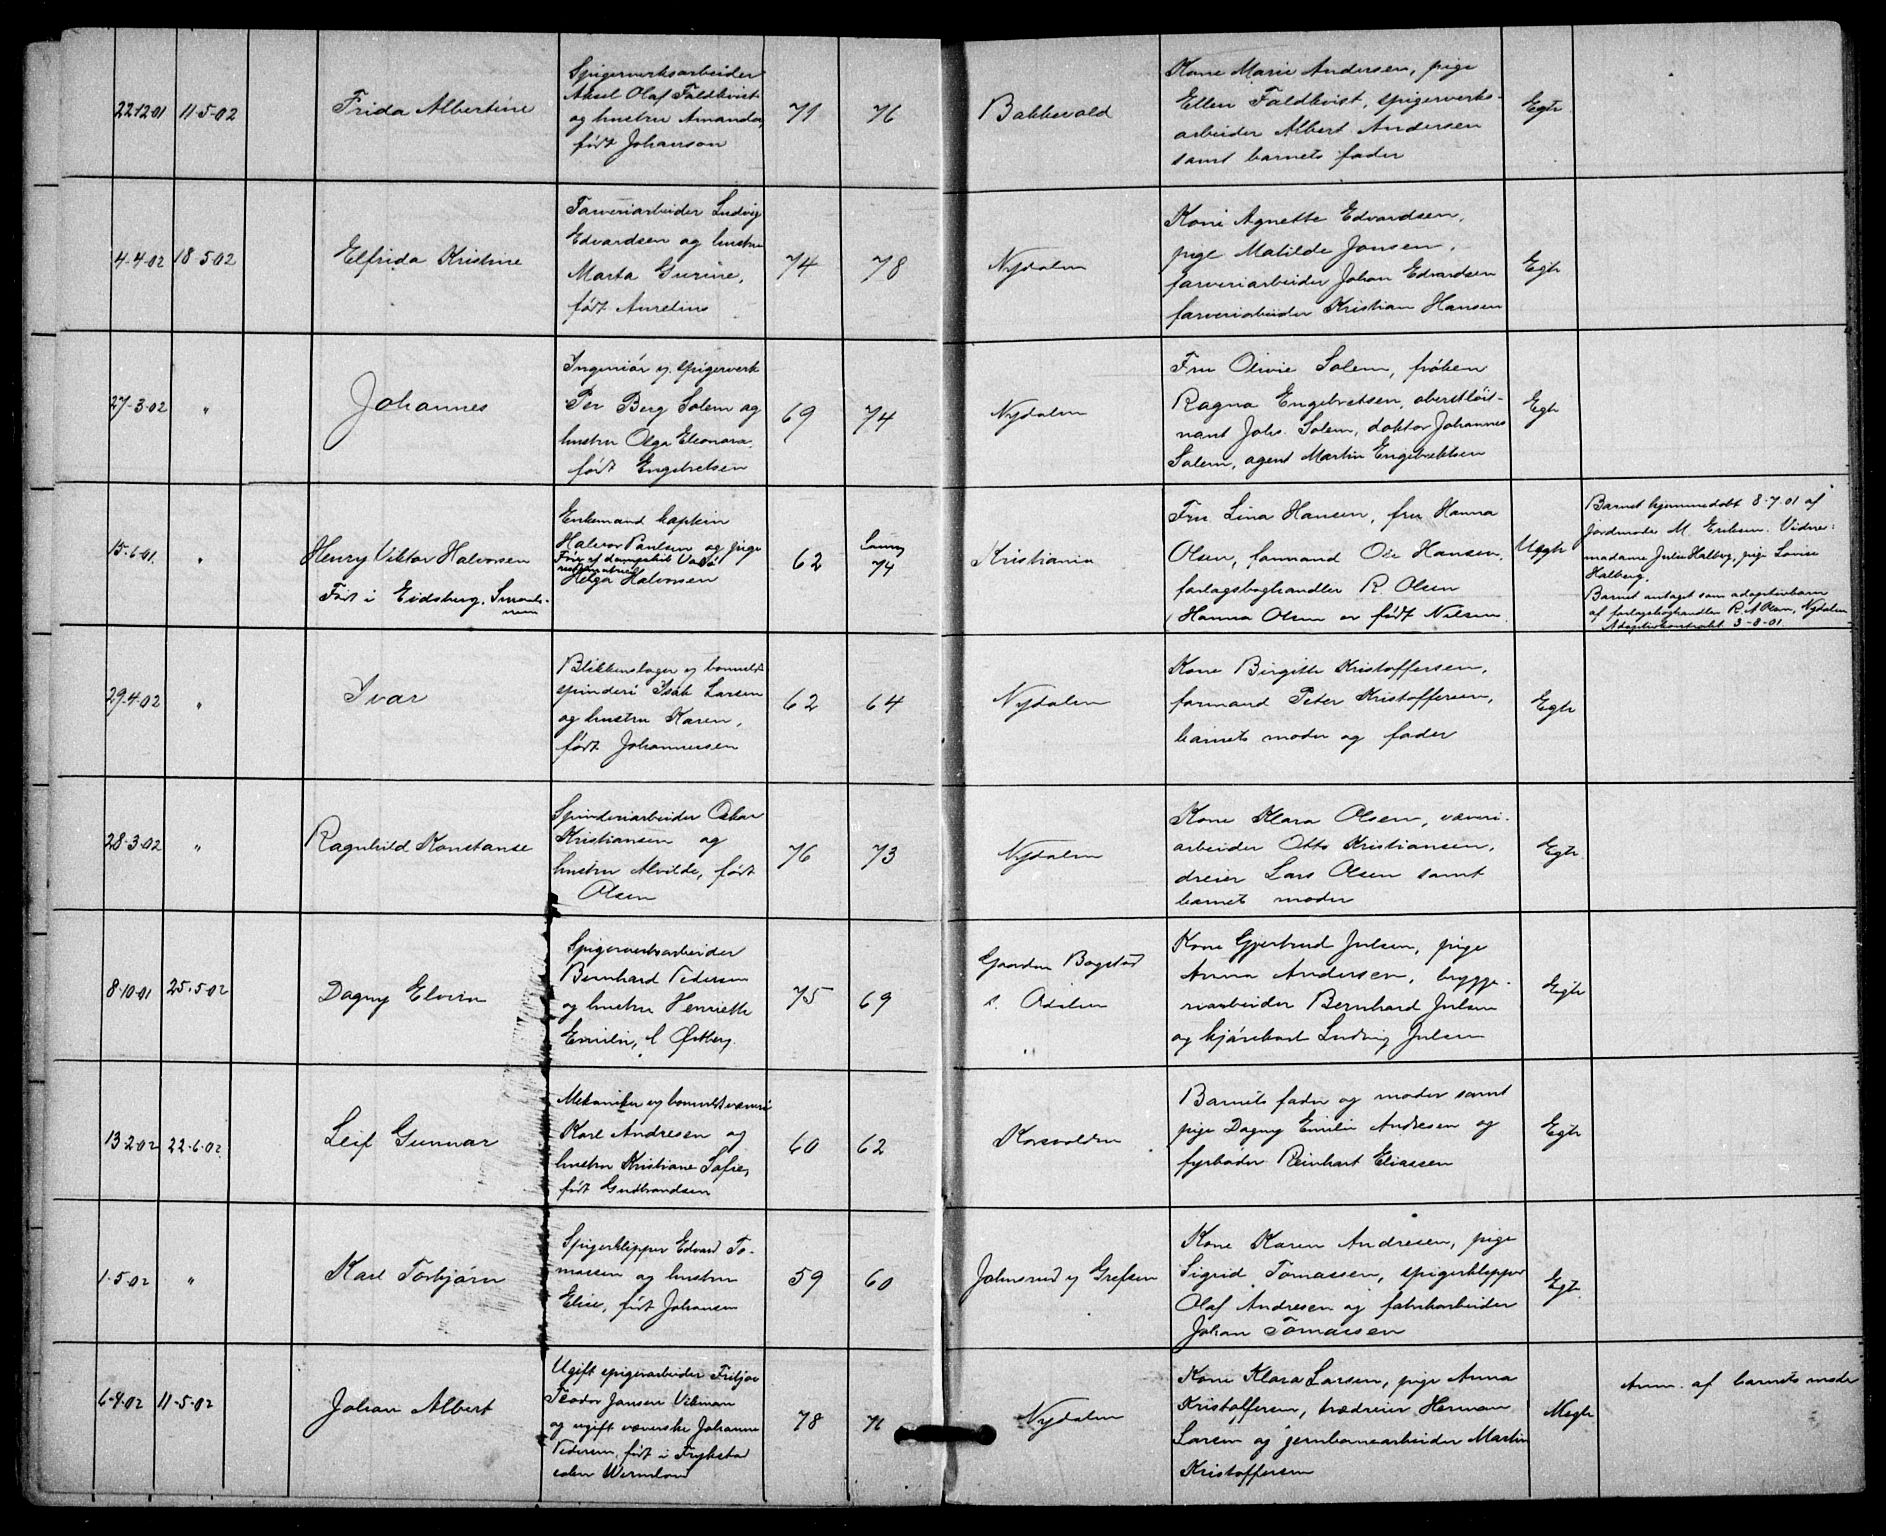 22.12.01 11-5-02
Frida Albertine
Spigerverksarbeider
Aksel Olaf Faldkvist
og hustru Amanda,
født Johanson
71
76
Bakkevold
Kone Marie Andersen, pige
Ellen Faldkvist, spigerverks-
arbeider Albert Andersen
samt barnets fader
Egte
4-4-02 18-5-02
Elfrida Kristine
Farveriarbeider Ludvig
Edvardsen og hustru
Marta Gurine,
født Aurelius
74
78
Nydalen
Kone Agnette Edvardsen,
pige Matilde Jansen,
farveriarbeider Johan Edvardsen
farveriarbeider Kristian Hansen
Egte
27-3-02 "
Johannes
Ingeniør v. spigerverk
Per Berg Solem og
hustru Olga Eleonora,
født Engebretsen
69
74
Nydalen
Fru Olivie Solem, frøken
Ragna Engebretsen, oberstløit-
nant Johs. Solem, doktor Johannes
Solem, agent Martin Engebretsen
Egte
15-6-01 "
Henry Viktor Halvorsen
Født i Eidsberg, Smaale-
nene
Enkemand kaptein
Halvor Paulsen og pige
Helga Halvorsen
62
74
Kristiania
Fru Lina Hansen, fru Hanna
Olsen, formand Ole Hansen,
forlagsboghandler R Olsen
(Hanna Olsen er født Nilsen
Uegte
Barnet hjemmedøbt 8-7-01 af
jordmode M Eriksen. Vidne:
madame Julie Halberg, pige Lovise
Halberg.
Barnet antaget som adoptivbarn
af forlagsboghandler R. A Olsen, Nydalen
Adoptivkontrakt 3-8-01.
29-4-02 "
Ivar
Blikkenslager v bomulds
spinderi Isak Larsen
og hustru Karen,
født Johannesen
62
64
Nydalen
Kone Birgitte Kristoffersen,
formand Peter Kristoffersen,
barnets moder og fader
Egte
28-3-02 "
Ragnhild Konstanse
Spinderiarbeider Oskar
Kristiansen og
hustru Alvilde, født
Olsen
76
73
Nydalen
Kone Klara Olsen, væveri-
arbeider Otto Kristiansen,
dreier Lars Olsen samt
barnets moder
Egte
8-10-01 25-5-02
Dagny Elvira
Spigerverksarbeider
Bernhard Pedersen
og hustru Henriette
Emilie, f Østberg.
75
69
Gaarden Bogstad
s. Odalen
Kone Gjertrud Julsen, pige
Anna Andersen, brygge-
riarbeider Bernhard Julsen
og kjørekar Ludvig Julsen
Egte
13-2-02 22-6-02
Leif Gunnar
Mekaniker v bomuldsvæveri
Karl Andresen og
hustru Kristiane Sofie,
født Gudbrandsen
60
62
Korsvolden
Barnets fader og moder samt
pige Dagny Emilie Andresen og
fyrbøder Reinhart Eliassen
Egte
1-5-02 "
Karl Torbjørn
Spigerklipper Edvard To-
massen og hustru
Elise, født Johansen
59
60
Johnsrud v Grefsen
Kone Karen Andresen, pige
Sigrid Tomassen, spigerklipper
Olaf Andresen og fabrikarbeider
Johan Tomassen
Egte
6-4-02 11-5-02
Johan Albert
Ugift spigerarbeider Fritjov
Teodor Jansen Vikman
og ugift væverske Johanne
Pedersen, født i Fryksta
Wermland
78
71
Nydalen
Kone Klara Larsen, pige Anna
Kristoffersen, trædreier Herman
Larsen og jernbanearbeider Martin
Kristoffersen
Uegte
Anm. af barnets moder